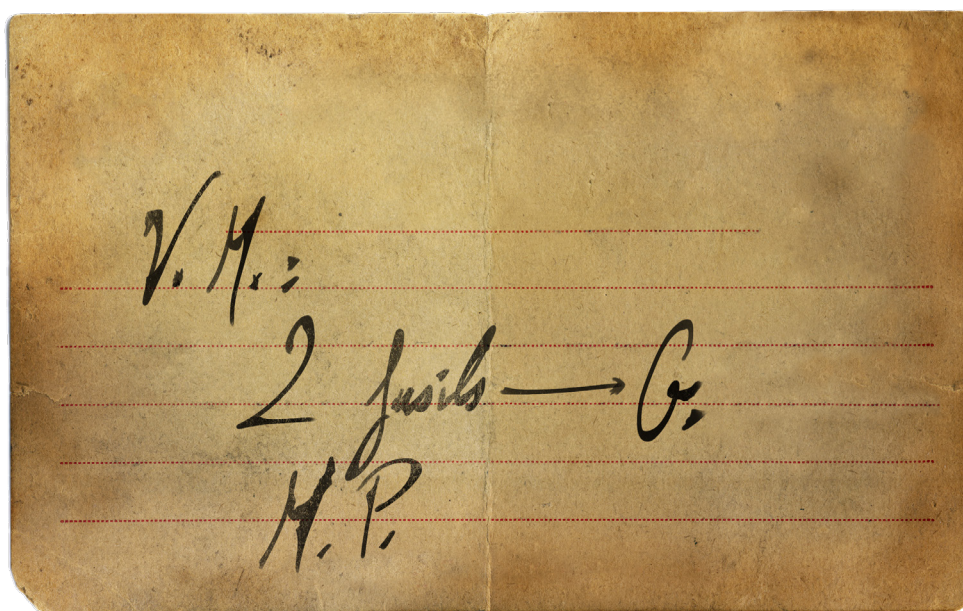 V. M.:
2 fusils → G.
M. P.